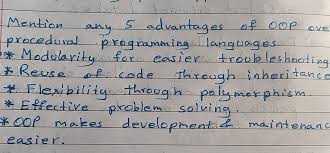 Mention any 5 advantages of OOP over
procedural programming languages.
* Modularity for easier troubleshooting
* Reuse of code through inheritance
* Flexibility through polymorphism.
* Effective problem solving.
* OOP makes development & maintenanc
easier.